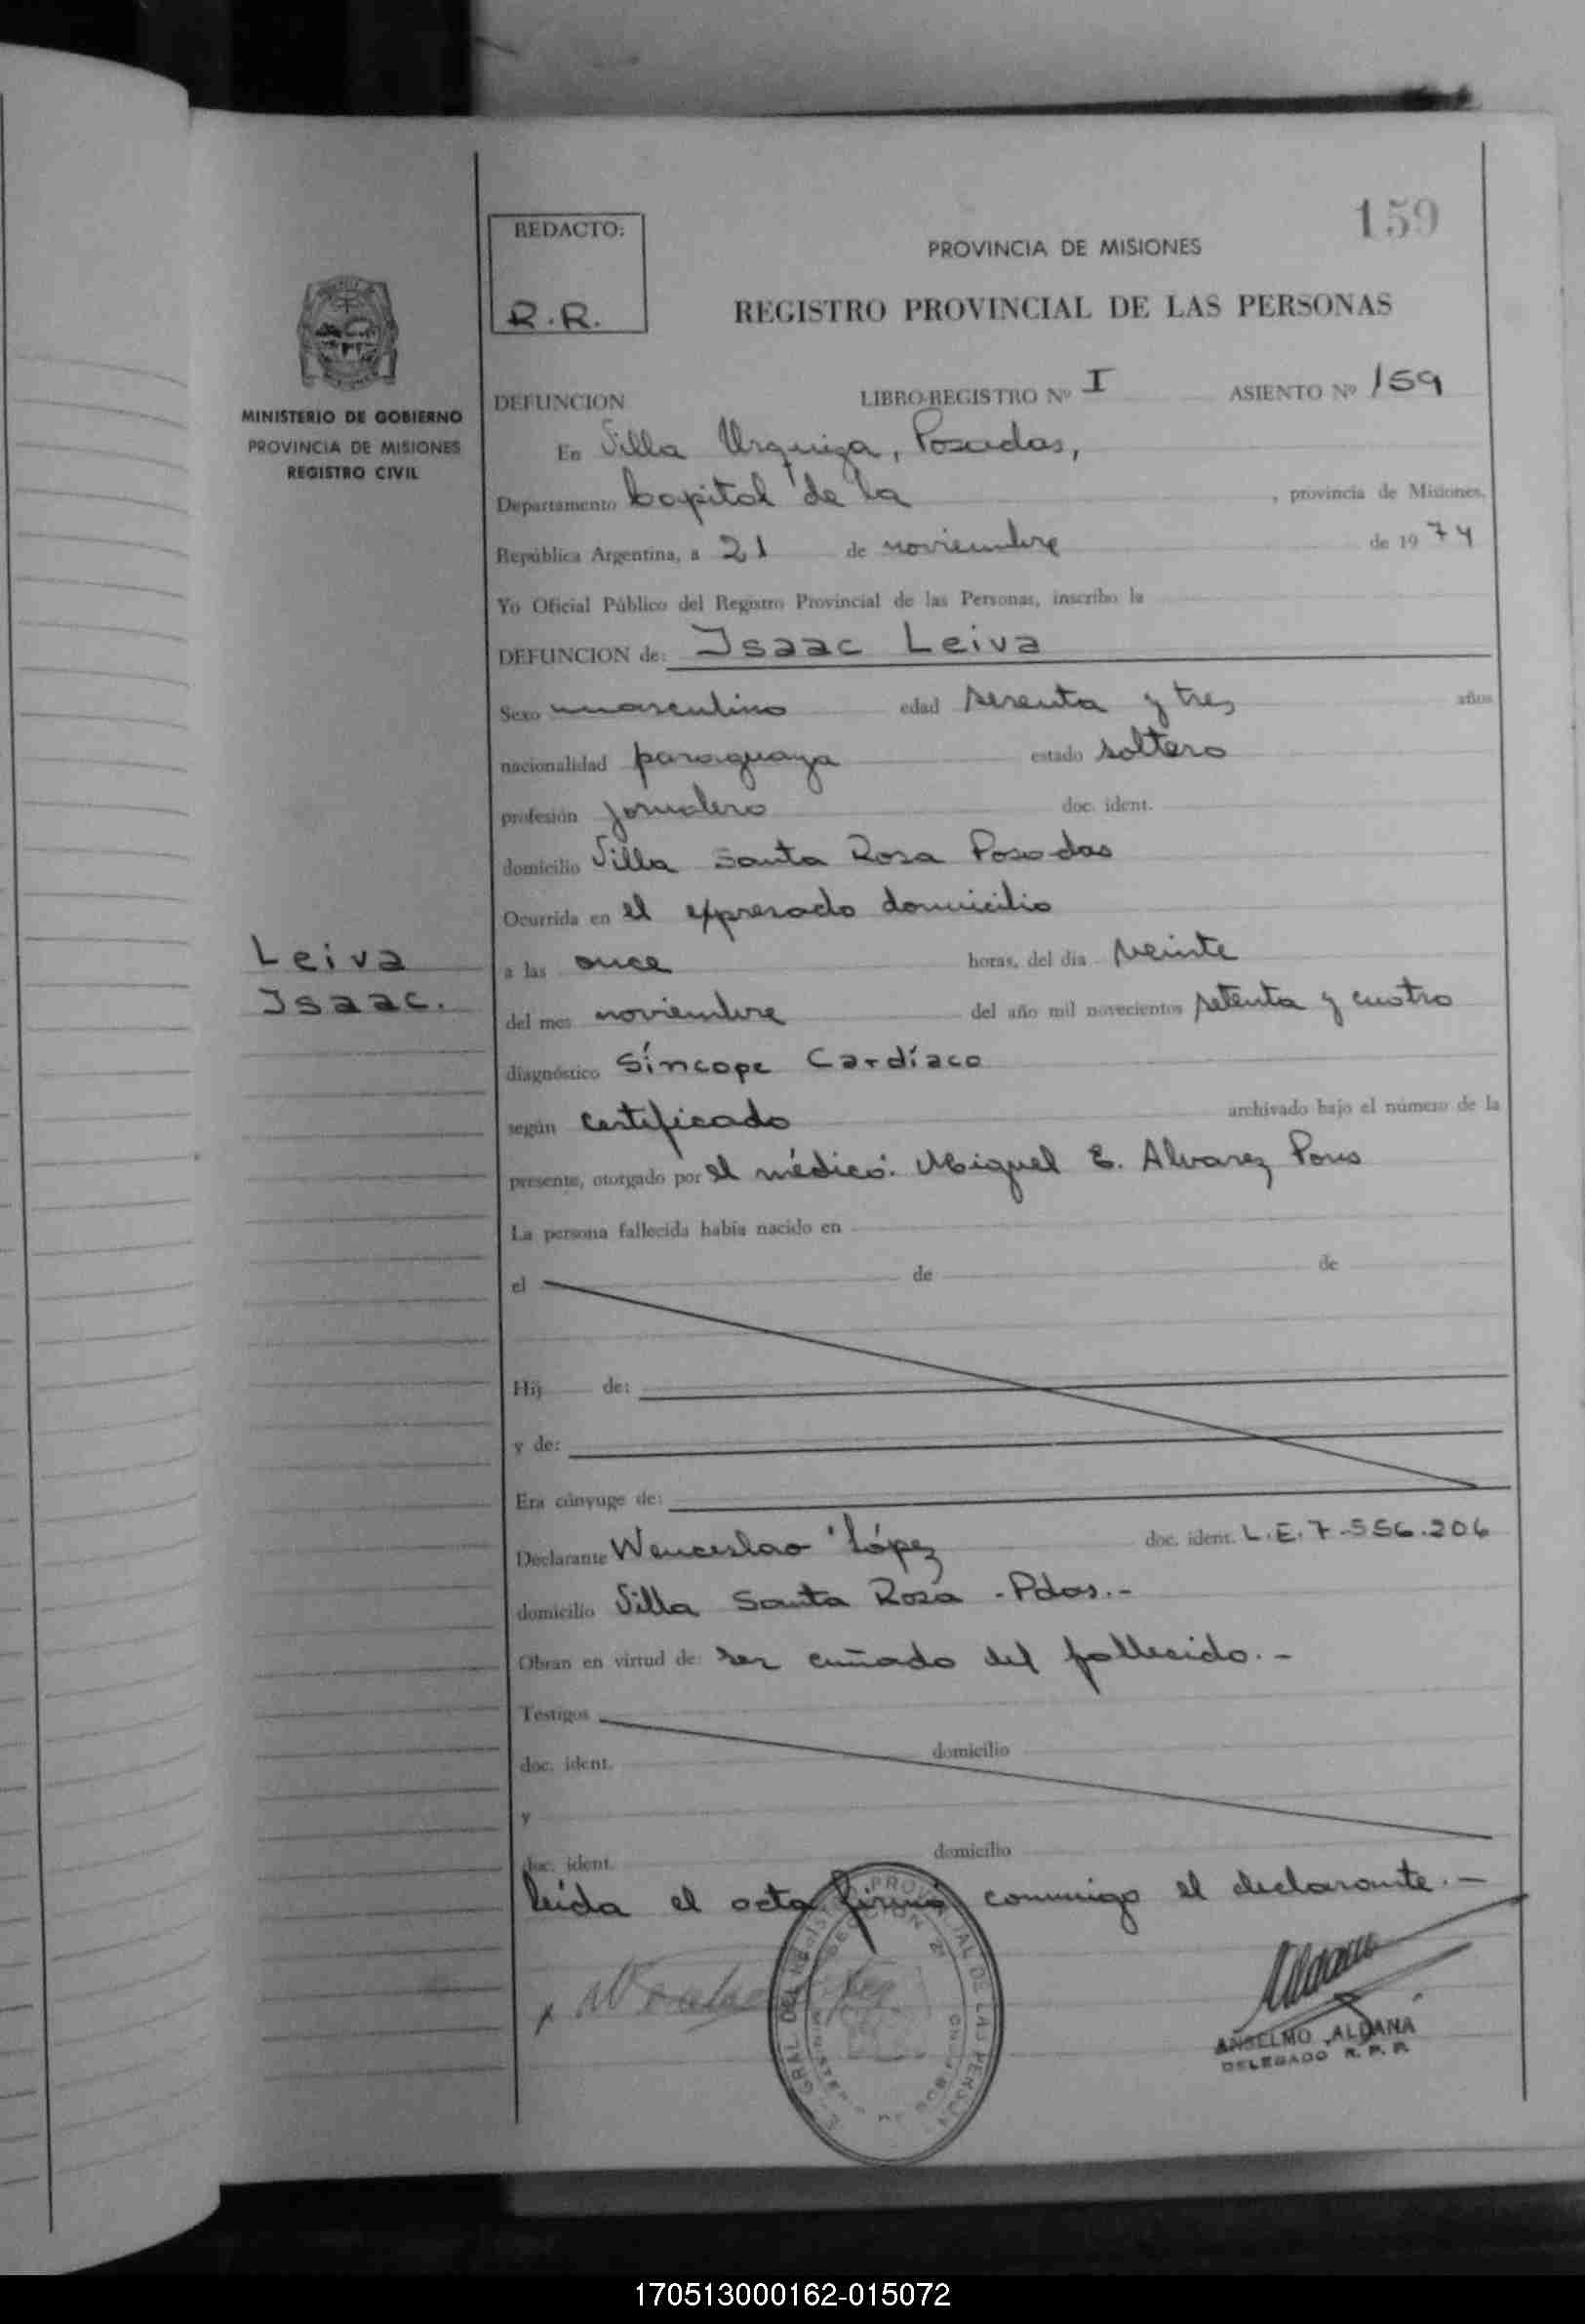 159
REDACTO:
R.R.
PROVINCIA DE MISIONES
REGISTRO PROVINCIAL DE LAS PERSONAS
MINISTERIO DE GOBIERNO
PROVINCIA DE MISIONES
REGISTRO CIVIL
DEFUNCION LIBRO-REGISTRO Nº I ASIENTO Nº 159
En Villa Urquiza, Posadas,
Departamento Capital de la , provincia de Misiones,
República Argentina, a 21 de noviembre de 1974
Yo Oficial Público del Registro Provincial de las Personas, inscribo la
DEFUNCION de: Isaac Leiva
Sexo masculino edad sesenta y tres años
nacionalidad paraguaya estado soltero
profesión jornalero doc. ident.
domicilio Villa Santa Rosa Posadas
Ocurrida en el expresado domicilio
Leiva
Isaac.
a las once horas, del día veinte
del mes noviembre del año mil novecientos setenta y cuatro
diagnóstico Síncope Cardíaco
según certificado archivado bajo el número de la
presente, otorgado por el médico: Miguel E. Alvarez Pons
La persona fallecida había nacido en
el de de
Hij de:
y de:
Era cónyuge de:
Declarante Wenceslao López doc. ident. L.E.7.556.206
domicilio Villa Santa Rosa -Pdas.-
Obran en virtud de: ser cuñado del fallecido.-
Testigos
doc. ident. domicilio
y
doc. ident. domicilio
leída el acta firmó conmigo el declarante.-
ANSELMO ALDANA
DELEGADO R. P. P.
170513000162-015072